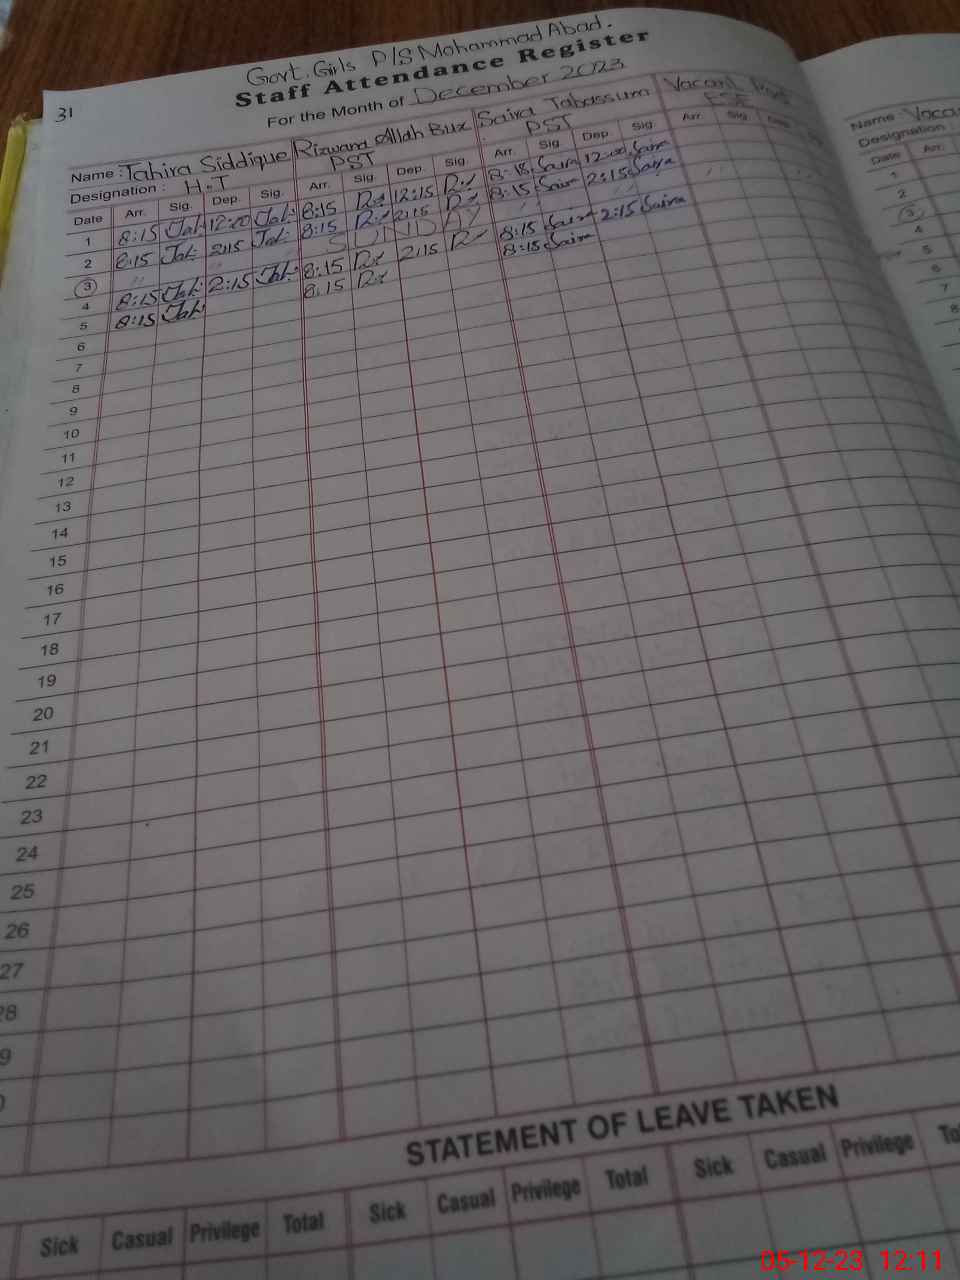 31
Govt. Girls P/S Mohammad Abad.
Staff Attendance Register
For the Month of December 2023
Name : Tahira Siddique Rizwana Allah Bux Saira Tabassum Vacant Post
Designation : H.T PST PST ESE
Date Arr. Sig. Dep. Sig. Arr. Sig. Dep. Sig. Arr. Sig. Dep. Sig. Arr. Sig. Dep.
1 8:15 12:00 8:15 12:15 8:15 Saira 12:00 Saira
2 8:15 2:15 8:15 2:15 8:15 Saira 2:15 Saira
3 " SUNDAY " " " "
4 8:15 2:15 8:15 2:15 8:15 Saira 2:15 Saira
5 8:15 8:15 8:15 Saira
6
7
8
9
10
11
12
13
14
15
16
17
18
19
20
21
22
23
24
25
26
27
28
9
0
STATEMENT OF LEAVE TAKEN
Sick Casual Privilege Total Sick Casual Privilege Total Sick Casual Privilege To
Name : Vaca
Designation :
Date Arr.
1
2
3
4
5
6
7
8
05-12-23 12:11